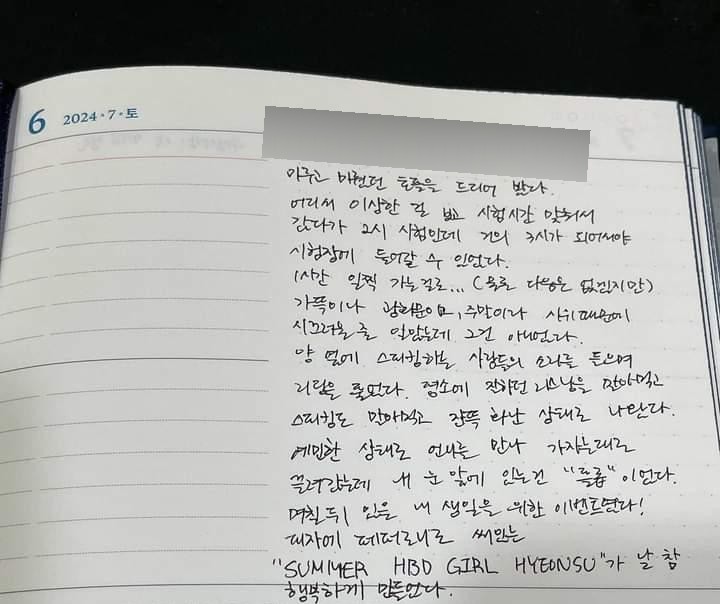 6 2024·7·토
미루고 미뤘던 토플을 드디어 봤다.
어디서 이상한 걸 보고 시험시간 맞춰서
갔다가 2시 시험인데 거의 3시가 되어서야
시험장에 들어갈 수 있었다.
1시간 일찍 가는걸로... (물론 다음은 없겠지만)
가뜩이나 광화문이고, 주말이라 시위때문에
시끄러울 줄 알았는데 그건 아니었다.
양 옆에 스피킹하는 사람들의 소리를 들으며
리딩을 풀었다. 평소에 잘하던 리스닝을 말아먹고
스피킹도 말아먹고 잔뜩 화난 상태로 나왔다.
예민한 상태로 언니를 만나 가자는대로
끌려갔는데 내 눈 앞에 있는건 "룸" 이었다.
며칠 뒤 있을 내 생일을 위한 이벤트였다!
모자에 레터로 써있는
"SUMMER HBD GIRL HYEONSU"가 날 참
행복하게 만들었다.